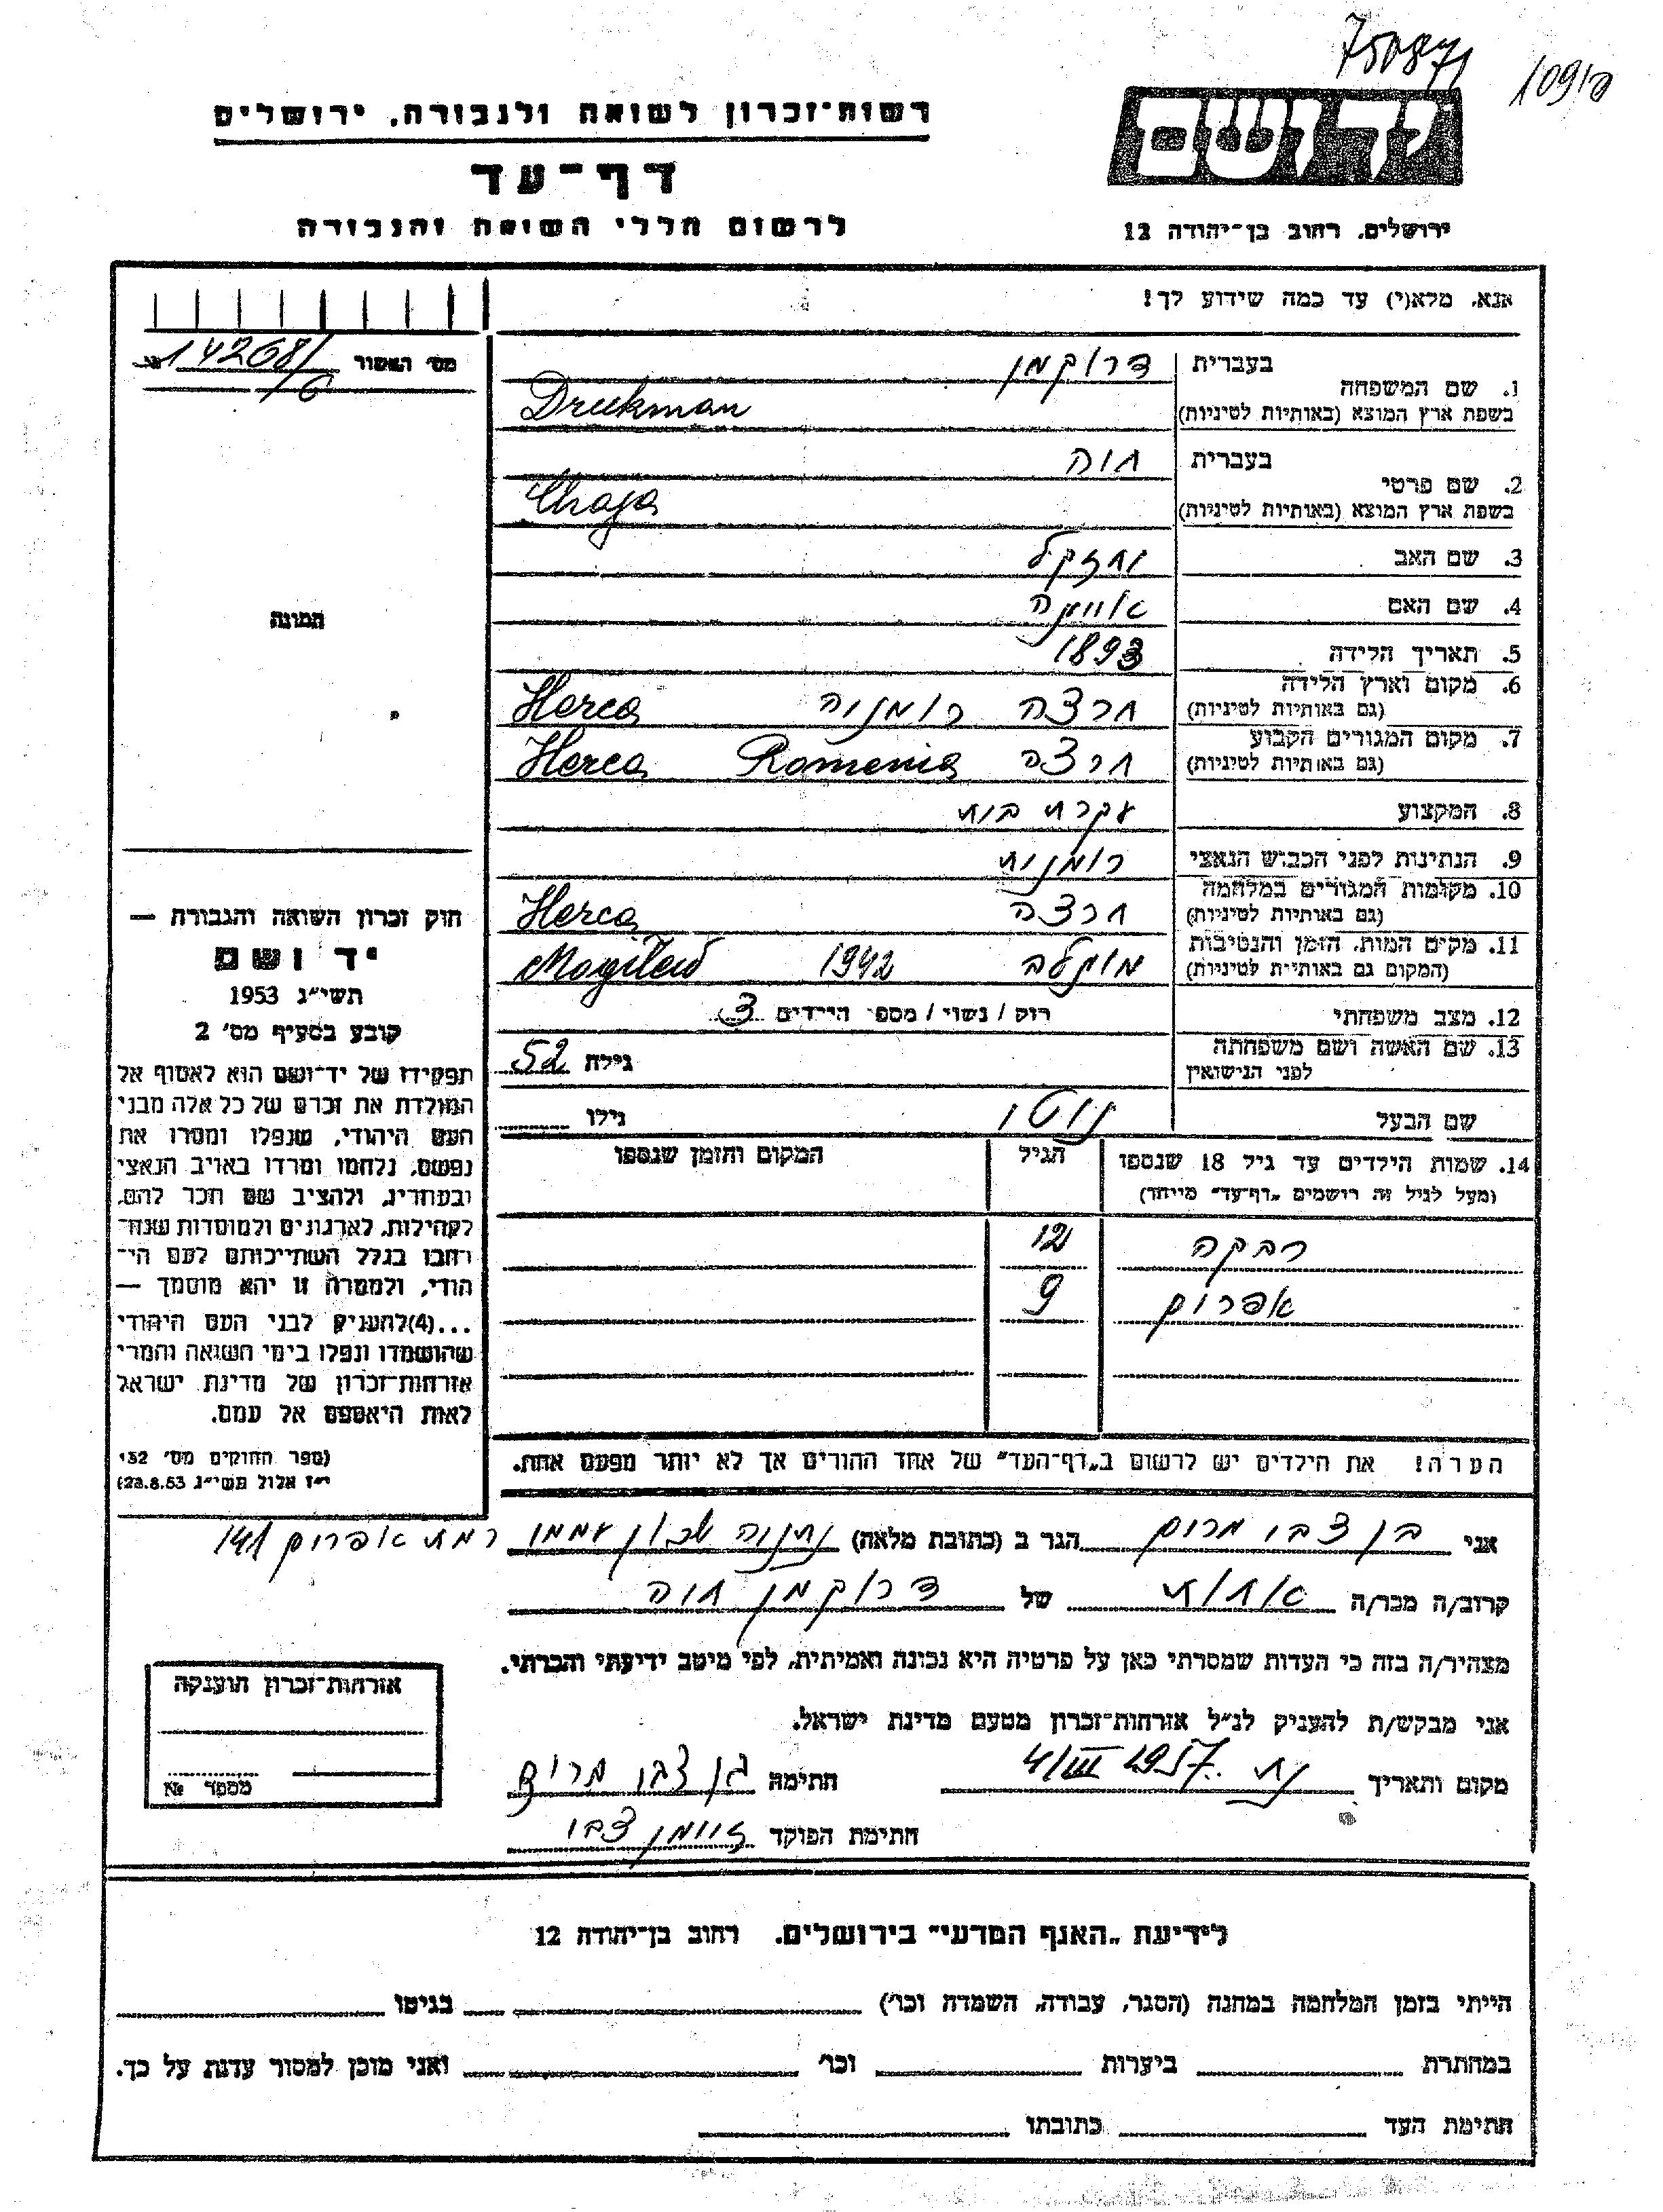 750871
רשות־זכרון לשואה ולגבורה, ירושלים
דף־עד
לרשום חללי השואה והגבורה
יד ושם
ירושלים, רחוב בן־יהודה 12
אנא, מלא(י) עד כמה שידוע לך!
מס׳ האשור 14268/6
1. שם המשפחה בעברית דרוקמן
בשפת ארץ המוצא (באותיות לטיניות) Druckman
2. שם פרטי בעברית חיה
בשפת ארץ המוצא (באותיות לטיניות) Chaja
3. שם האב יחזקל
4. שם האם
5. תאריך הלידה 1893
6. מקום וארץ הלידה (גם באותיות לטיניות) הרצה רומניה Herca
7. מקום המגורים הקבוע (גם באותיות לטיניות) הרצה Romenia Herca
8. המקצוע עקרת בית
9. הנתינות לפני הכבוש הנאצי רומנית
10. מקומות המגורים במלחמה (גם באותיות לטיניות) הרצה Herca
11. מקום המות, הזמן והנסיבות (המקום גם באותיות לטיניות) 1942 Mogilew
12. מצב משפחתי רווק / נשוי / מספר הילדים 3
13. שם האשה ושם משפחתה לפני הנישואין גילה 52
שם הבעל נוטי גילו
14. שמות הילדים עד גיל 18 שנספו הגיל המקום והזמן שנספו
(מעל לגיל זה רושמים „דף־עד” מיוחד)
רבקה 12
אפרים 9
הערה! את הילדים יש לרשום ב„דף־העד” של אחד ההורים אך לא יותר מפעם אחת.
התמונה
חוק זכרון השואה והגבורה —
יד ושם
תשי״ג 1953
קובע בסעיף מס׳ 2
תפקידו של יד־ושם הוא לאסוף אל
המולדת את זכרם של כל אלה מבני
העם היהודי, שנפלו ומסרו את
נפשם, נלחמו ומרדו באויב הנאצי
ובעוזריו, ולהציב שם וזכר להם,
לקהילות, לארגונים ולמוסדות שנח־
רבו בגלל השתייכותם לעם הי־
הודי, ולמטרה זו יהא מוסמך —
...(4)להעניק לבני העם היהודי
שהושמדו ונפלו בימי השואה והמרי
אזרחות־זכרון של מדינת ישראל
לאות היאספם אל עמם.
(ספר החוקים מס׳ 132
י״ז אלול תשי״ג 28.8.53)
אני בן צבי מרים הגר ב (כתובת מלאה) נתניה שכון עממי רמת אפרים 141
קרוב/ה מכר/ה אחות של דרוקמן חיה
מצהיר/ה בזה כי העדות שמסרתי כאן על פרטיה היא נכונה ואמיתית, לפי מיטב ידיעתי והכרתי.
אני מבקש/ת להעניק לנ״ל אזרחות־זכרון מטעם מדינת ישראל.
מקום ותאריך 4/III 1957 חתימה בן צבי מרים
חתימת הפוקד זיימן צבי
אזרחות־זכרון הוענקה
מספר №
לידיעת „האגף המדעי” בירושלים, רחוב בן־יהודה 12
הייתי בזמן המלחמה במחנה (הסגר, עבודה, השמדה וכו׳) בגיטו
במחתרת ביערות וכו׳ ואני מוכן למסור עדות על כך.
חתימת העד כתובתו